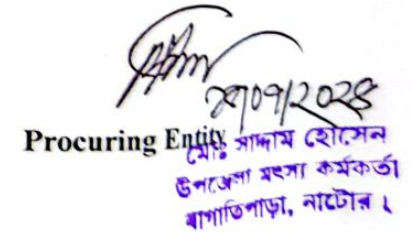 ২৮/০৭/২০২৪
Procuring Entity
মোঃ সাদ্দাম হোসেন
উপজেলা মৎস্য কর্মকর্তা
বাগাতিপাড়া, নাটোর।